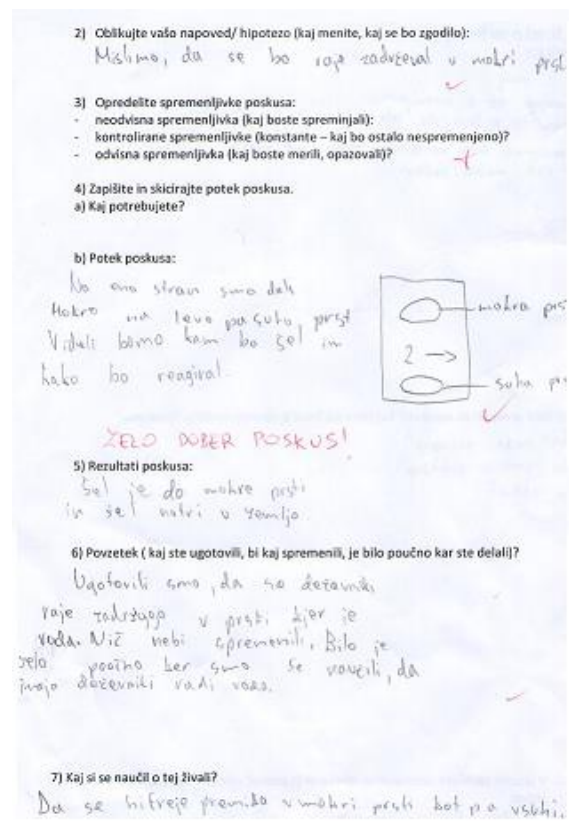 2) Oblikujte vašo napoved/ hipotezo (kaj menite, kaj se bo zgodilo):
Mislimo, da se bo raje zadrževal v mokri prst
3) Opredelite spremenljivke poskusa:
- neodvisna spremenljivka (kaj boste spreminjali):
- kontrolirane spremenljivke (konstante – kaj bo ostalo nespremenjeno)?
- odvisna spremenljivka (kaj boste merili, opazovali)?
4) Zapišite in skicirajte potek poskusa.
a) Kaj potrebujete?
b) Potek poskusa:
Na eno stran smo dali
mokro na levo pa suho prst
Videli bomo kam bo šel in
kako bo reagiral.
mokra prs
2 →
suha prs
ZELO DOBER POSKUS!
5) Rezultati poskusa:
Šel je do mokre prsti
in šel notri v zemljo.
6) Povzetek ( kaj ste ugotovili, bi kaj spremenili, je bilo poučno kar ste delali)?
Ugotovili smo, da so deževniki
raje zadržujejo v prsti kjer je
voda. Nič nebi spremenili. Bilo je
zelo poučno ker smo se naučili, da
imajo deževniki radi vodo.
7) Kaj si se naučil o tej živali?
Da se hitreje premika v mokri prsti kot pa v suhi.